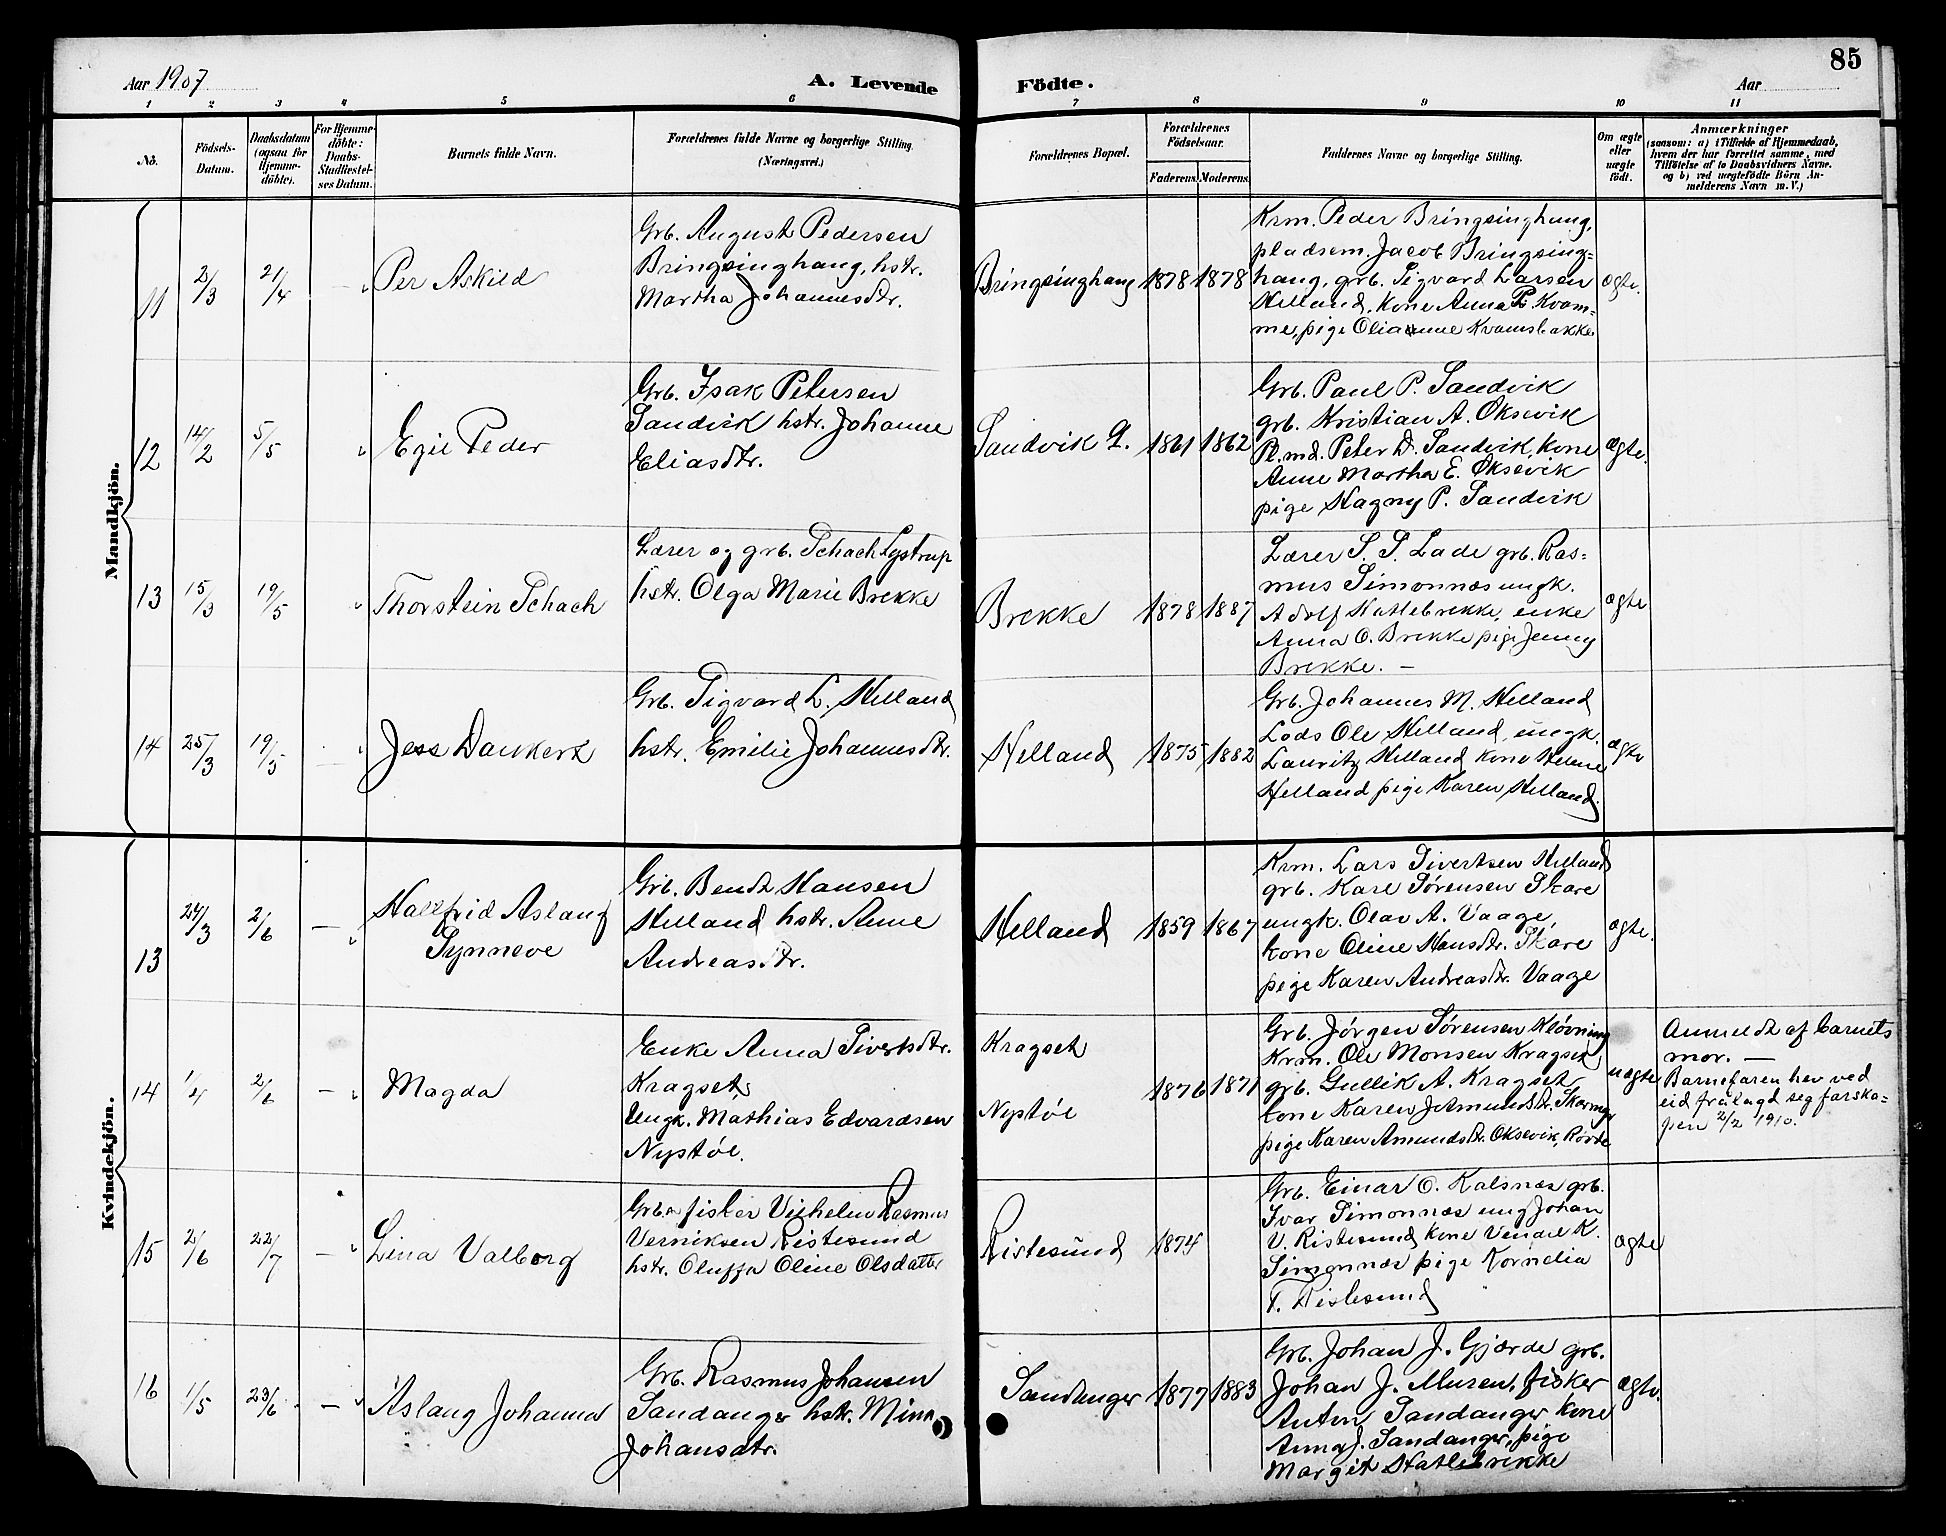 Aar 1907
A. Levende
Födte.
Aar
85
1
2
3
4
5
6
7
8
9
10
11
No.
Födsels-
Datum.
Daabsdatum
(ogsaa for
Hjemme-
döbte).
For Hjemme-
döbte:
Daabs-
Stadfæstel-
ses Datum.
Barnets fulde Navn.
Forældrenes fulde Navne og borgerlige Stilling.
(Næringsvei.)
Forældrenes Bopæl.
Forældrenes
Födselsaar.
Faderens.
Moderens.
Faddernes Navne og borgerlige Stilling.
Om ægte
eller
uægte
født.
Anmærkninger
(saasom: a) i Tilfælde af Hjemmedaab,
hvem der har forrettet samme, med
Tilføielse af to Daabsvidners Navne.
og b) ved uegtefödte Börn An-
melderens Navn m. V.)
Mandkjön.
11
2/3
21/4
Per Askild
Grb. August Pedersen
Bringsinghaug, hstr.
Martha Johannesdtr.
Bringsinghaug
1878
1878
Krm. Peder Bringsinghaug,
pladsem. Jacob Bringsing=
haug, grb. Sigvard Larsen
Helland, kone Anna P. Kvam=
me, pige Olianne Kvamsbakke
ægte.
12
14/2
5/5
Egil Peder
Grb. Isak Petersen
Sandvik hstr. Johanne
Eliasdtr.
Sandvik
1861
1862
Grb. Paul P. Sandvik
grb. Kristian A. Oksevik
Pl.md. Peter D. Sandvik, kone
Anne Martha E. Oksevik
pige Hagny P. Sandvik
ægte.
13
15/3
19/5
Thorstein Schach
Lærer og grb. Schach Lystrup
hstr. Olga Marie Brekke
Brekke
1878
1887
Lærer S. S. Lade grb. Ras=
mus Simonnæs ungk.
Adolf Hatlebrekke, enke
Anna O. Brekke pige Jenny
Brekke. —
ægte
14
25/3
19/5
Jess Dankert
Grb. Sigvard L. Helland
hstr. Emilie Johannesdtr.
Helland
1875
1882
Grb. Johannes M. Helland
Lods Ole Helland, ungk.
Lauritz Helland kone Helene
Helland pige Karen Helland.
ægte
Kvindekjön.
13
24/3
2/6
—
Hallfrid Aslaug
Synneve
Grb. Bendt Hansen
Helland hstr. Anne
Andreasdtr.
Helland
1859
1867
Krm. Lars Sivertsen Helland
grb. Karl Sørensen Skare
ungk. Olav A. Vaage,
kone Oline Hansdtr. Skare
pige Karen Andreasdtr. Vaage
ægte.
14
1/4
2/6
—
Magda
Enke Anna Sivertsdtr.
Kragset,
Ungk. Mathias Edvardsen
Nystøl.
Kragset
Nystøl
1876
1871
Grb. Jörgen Sørensen Kløvning
Krm. Ole Monsen Kragset
grb. Gullik A. Kragset
kone Karen J. Amundsdtr.
pige Karen Amundsdtr. Oksevik, Røvde
uægte
Anmeldt af barnets
mor. —
Barnefaren hev ved
eid frålagd seg farska=
pen 2/2 1910.
15
2/6
22/7
—
Lina Valborg
Grb. fisker Vilhelm Rasmus
Verniksen Ristesund
hstr. Oluffa Oline Olsdatter
Ristesund
1874
Grb. Einar O. Kalsnæs grb.
Ivar Simonnæs ung Johan
V. Ristesund kone Vendel K.
Simonnæs pige Kornelia
T. Ristesund
ægte
16
1/5
23/6
—
Aslaug Johanna
Grb. Rasmus Johansen
Sandanger hstr. Mina
Johansdtr.
Sandanger
1877
1883
Grb. Johan J. Gjærde grb.
Johan J. Muren, fisker
Anton Sandanger kone
Anna J. Sandanger, pige
Margit Hatlebrekke
ægte.